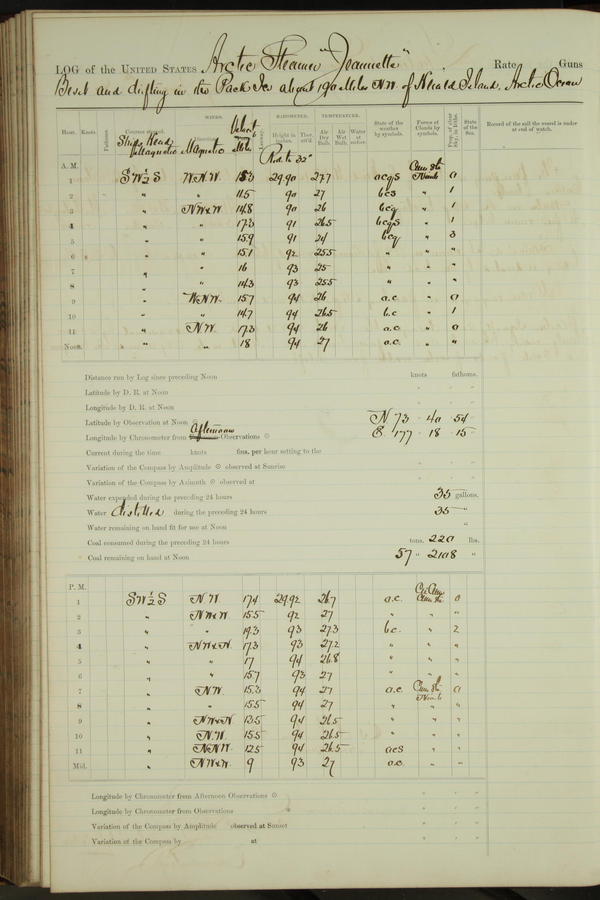 LOG of the UNITED STATES Arctic Steamer "Jeannette" Rate Guns
Beset and drifting in the Pack Ice about 190 Miles N.W. of Herald Island, Arctic Ocean
WINDS. BAROMETER. TEMPERATURE.
Hour. Knots. Fathoms. Course steered. Ships Head Magnetic Direction Magnetic Velocity Height in inches. Ther. att'd. Air Dry Bulb. Air Wet Bulb. Water at surface. State of the weather by symbols. Forms of Clouds by symbols. Prop. of clear Sky, in 10ths. State of the Sea. Record of the sail the vessel is under at end of watch.
Red. to 32°
A. M.
1 SW½S W.N.W. 15.3 29.90 27.7 ocqs Cum Str Nimb 0
2 " " 11.5 90 27 bcs " 1
3 " NWxW 14.8 90 26 bcq " 1
4 " " 17.3 91 26.5 bcqs " 1
5 " " 15.9 91 24 bcq " 3
6 " " 15.1 92 25.5 " " "
7 " " 16 93 25 " " "
8 " " 14.3 93 25.5 " " "
9 " W.N.W. 15.7 94 26 o.c. " 0
10 " " 14.7 94 26.5 b.c " 1
11 " N.W. 17.3 94 26 o.c. " 0
Noon. " " 18 94 27 o.c. " "
Distance run by Log since preceding Noon knots fathoms.
Latitude by D. R. at Noon
Longitude by D. R. at Noon
Latitude by Observation at Noon N 73 - 40 - 54
Longitude by Chronometer from Afternoon Observations E. 177 - 18 - 15
Current during the time knots fms. per hour setting to the
Variation of the Compass by Amplitude observed at Sunrise
Variation of the Compass by Azimuth observed at
Water expended during the preceding 24 hours 35 gallons.
Water distilled during the preceding 24 hours 35 "
Water remaining on hand fit for use at Noon "
Coal consumed during the preceding 24 hours tons. 220 lbs.
Coal remaining on hand at Noon 57 " 2108 "
P. M.
1 SW½S N.W. 17.4 29.92 26.7 o.c. Ci Cum Cum Str 0
2 " NWxW 15.5 92 27 " " "
3 " " 19.3 93 27.3 b.c. " 2
4 " NWxN 17.3 93 27.2 " " "
5 " " 17 94 26.8 " " "
6 " " 15.7 93 27 " " "
7 " N.W. 15.3 94 27 o.c. Cum Str Nimb 0
8 " " 15.5 94 27 " " "
9 " NWxN 13.5 94 26.5 " " "
10 " N.W. 15.5 94 26.5 " " "
11 " N.N.W. 12.5 94 26.5 ocs " "
Mid. " NWxW. 9 93 27 o.c. " "
Longitude by Chronometer from Afternoon Observations
Longitude by Chronometer from Observations
Variation of the Compass by Amplitude observed at Sunset
Variation of the Compass by at